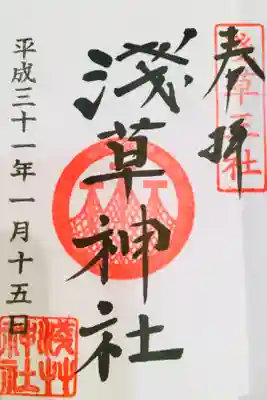 奉拝
浅草三社
淺草神社
平成三十一年一月十五日
淺草神社